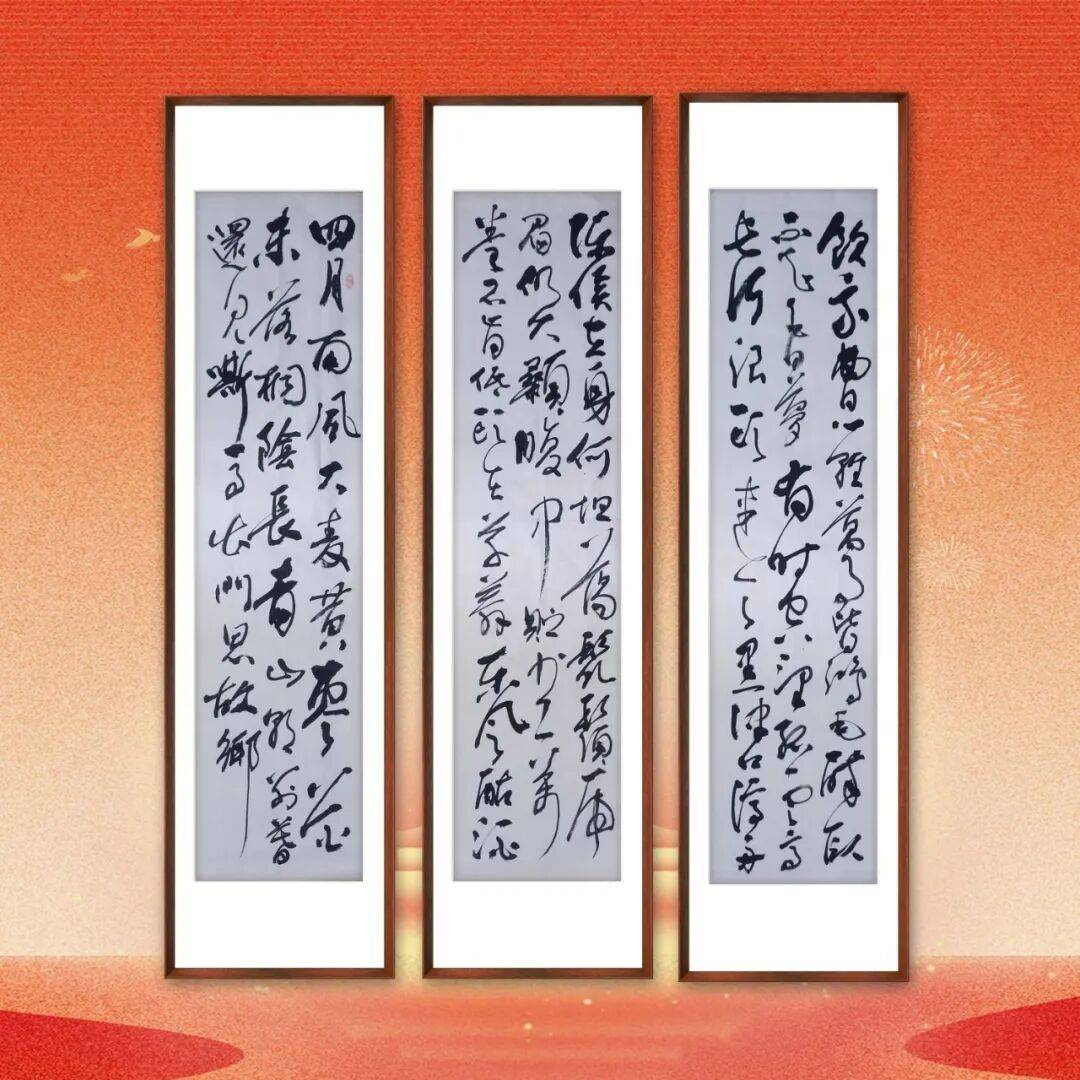 四月南風大麦黄棗花
未落桐陰長青山朝別暮
還見嘶馬出門思故鄉
陳侯立身何坦蕩虬鬚虎
眉仍大顙腹中貯书一萬
卷不肯低頭在草莽東门酤酒
飲我曹心輕萬事皆鴻毛醉臥
不知白日暮有时空望孤雲高
长河浪頭連天黑津口停舟